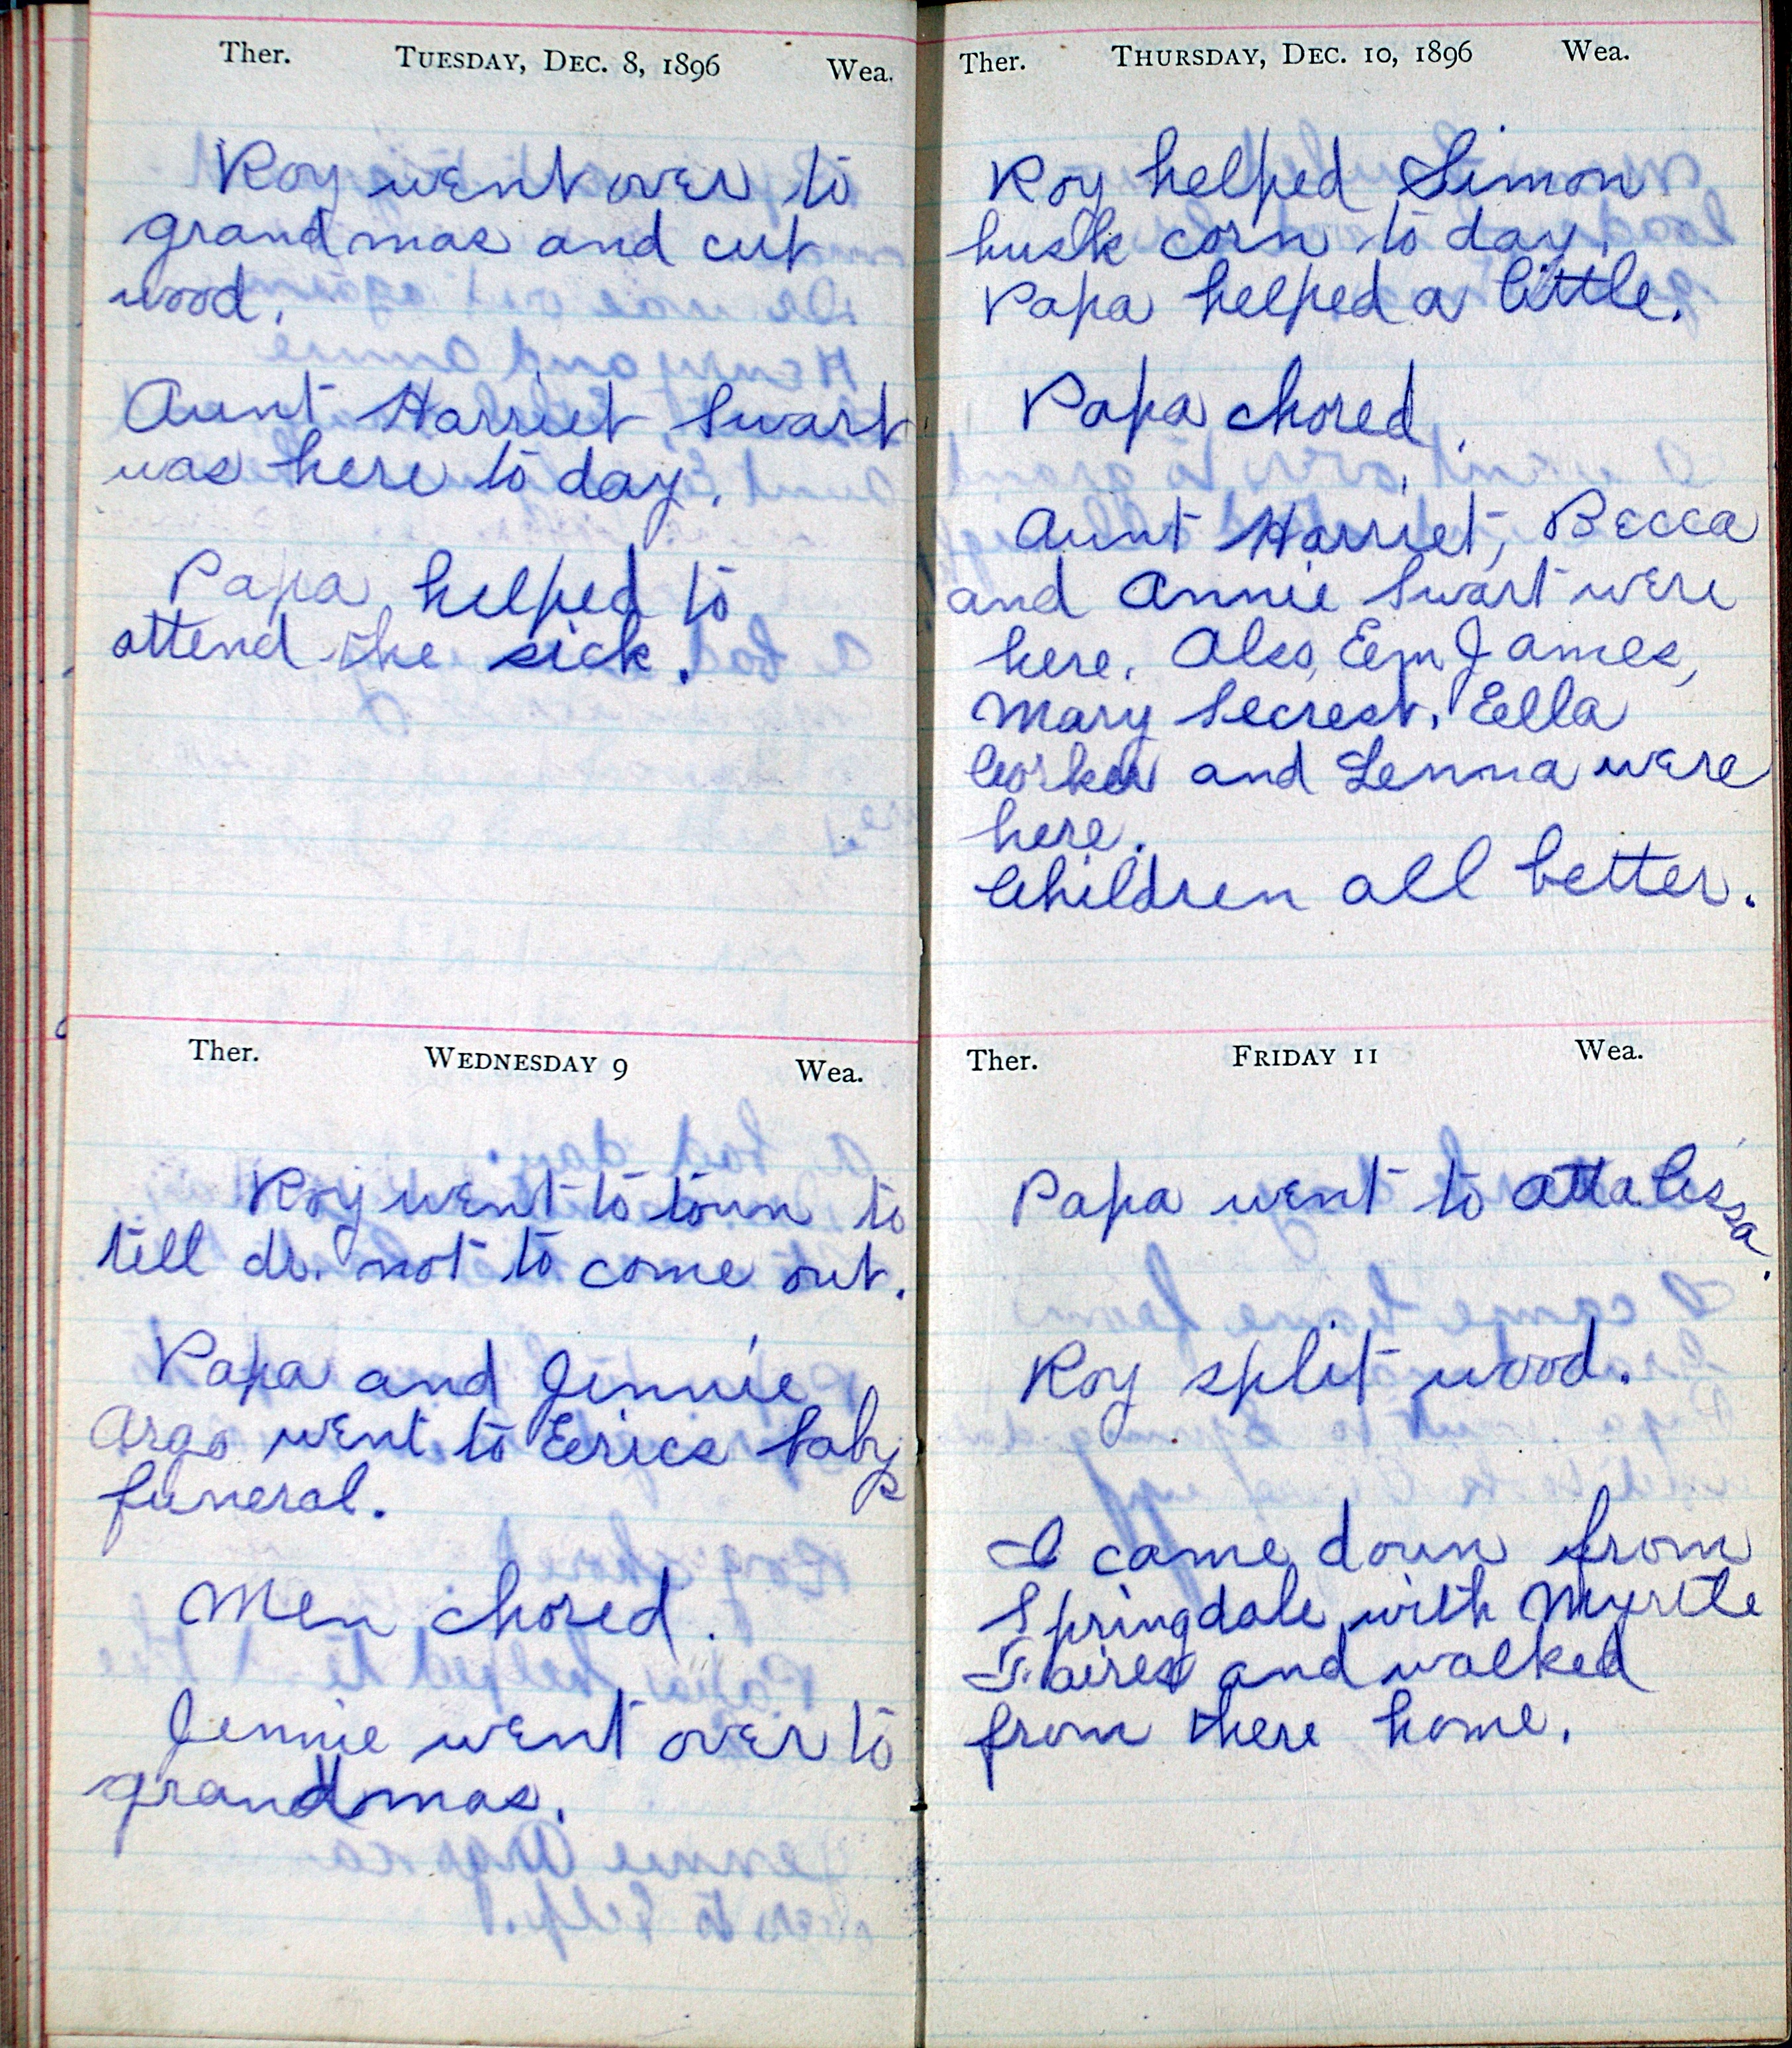 Ther. Tuesday, Dec. 8, 1896 Wea.
Roy went over to
grandmas and cut
wood.
Aunt Harriet Swart
was here to day.
Papa helped to
attend the sick.
Ther. Wednesday 9 Wea.
Roy went to town to
tell dr. not to come out.
Papa and Jennie
Argo went to Erics babys
funeral.
Men chored.
Jennie went over to
grandmas.
Ther. Thursday, Dec. 10, 1896 Wea.
Roy helped Simon
husk corn to day.
Papa helped a little.
Papa chored.
Aunt Harriet, Becca
and Annie Swart were
here. Also, Em James,
Mary Secrest, Ella
Corker and Lenna were
here.
Children all better.
Ther. Friday 11 Wea.
Papa went to Attalissa.
Roy split wood.
I came down from
Springdale with Myrtle
and walked
from there home.